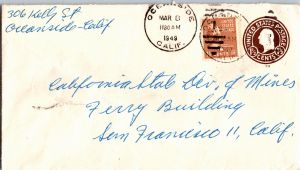 306 Kelly St
Oceanside - Calif.
OCEANSIDE
MAR 8
11 30 AM
1949
CALIF.
UNITED STATES POSTAGE
CENTS
California Stab Div. of Mines
Ferry Building
San Francisco 11, Calif.